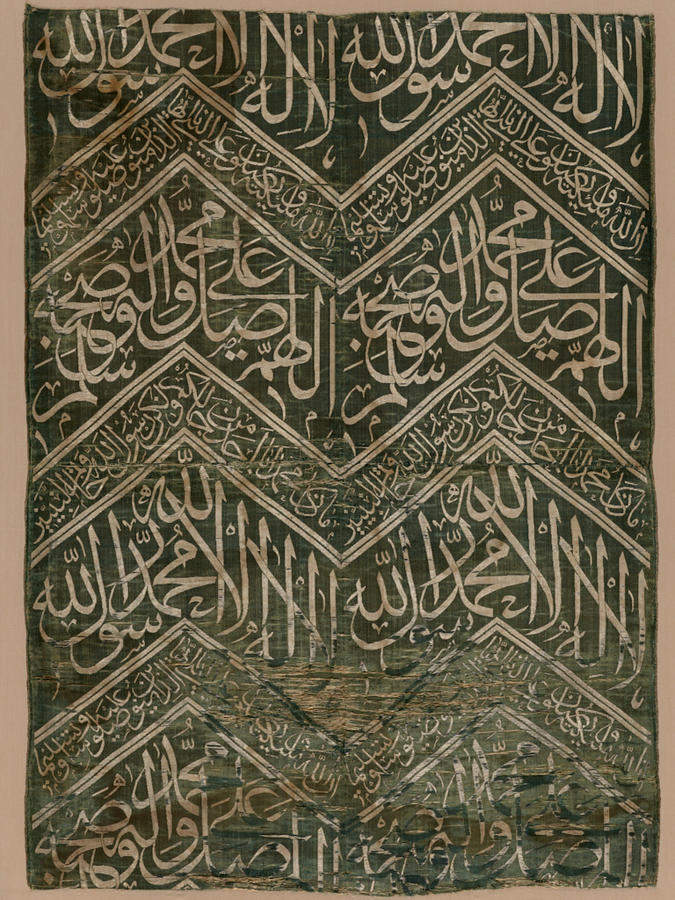 لا اله الا محمد رسول الله لا اله الا محمد رسول الله
ان الله وملائكته يصلون على النبي يا ايها الذين امنوا صلوا عليه وسلموا تسليما ان الله وملائكته يصلون على النبي يا ايها الذين امنوا صلوا عليه وسلموا تسليما
اللهم صل على محمد واله وصحبه وسلم اللهم صل على محمد واله وصحبه وسلم
ما كان محمد ابا احد من رجالكم ولكن رسول الله وخاتم النبيين ما كان محمد ابا احد من رجالكم ولكن رسول الله وخاتم النبيين
لا اله الا الله محمد رسول الله لا اله الا الله محمد رسول الله
ان الله وملائكته يصلون على النبي يا ايها الذين امنوا صلوا عليه وسلموا تسليما
صل على محمد واله وصحبه صل على محمد واله وصحبه